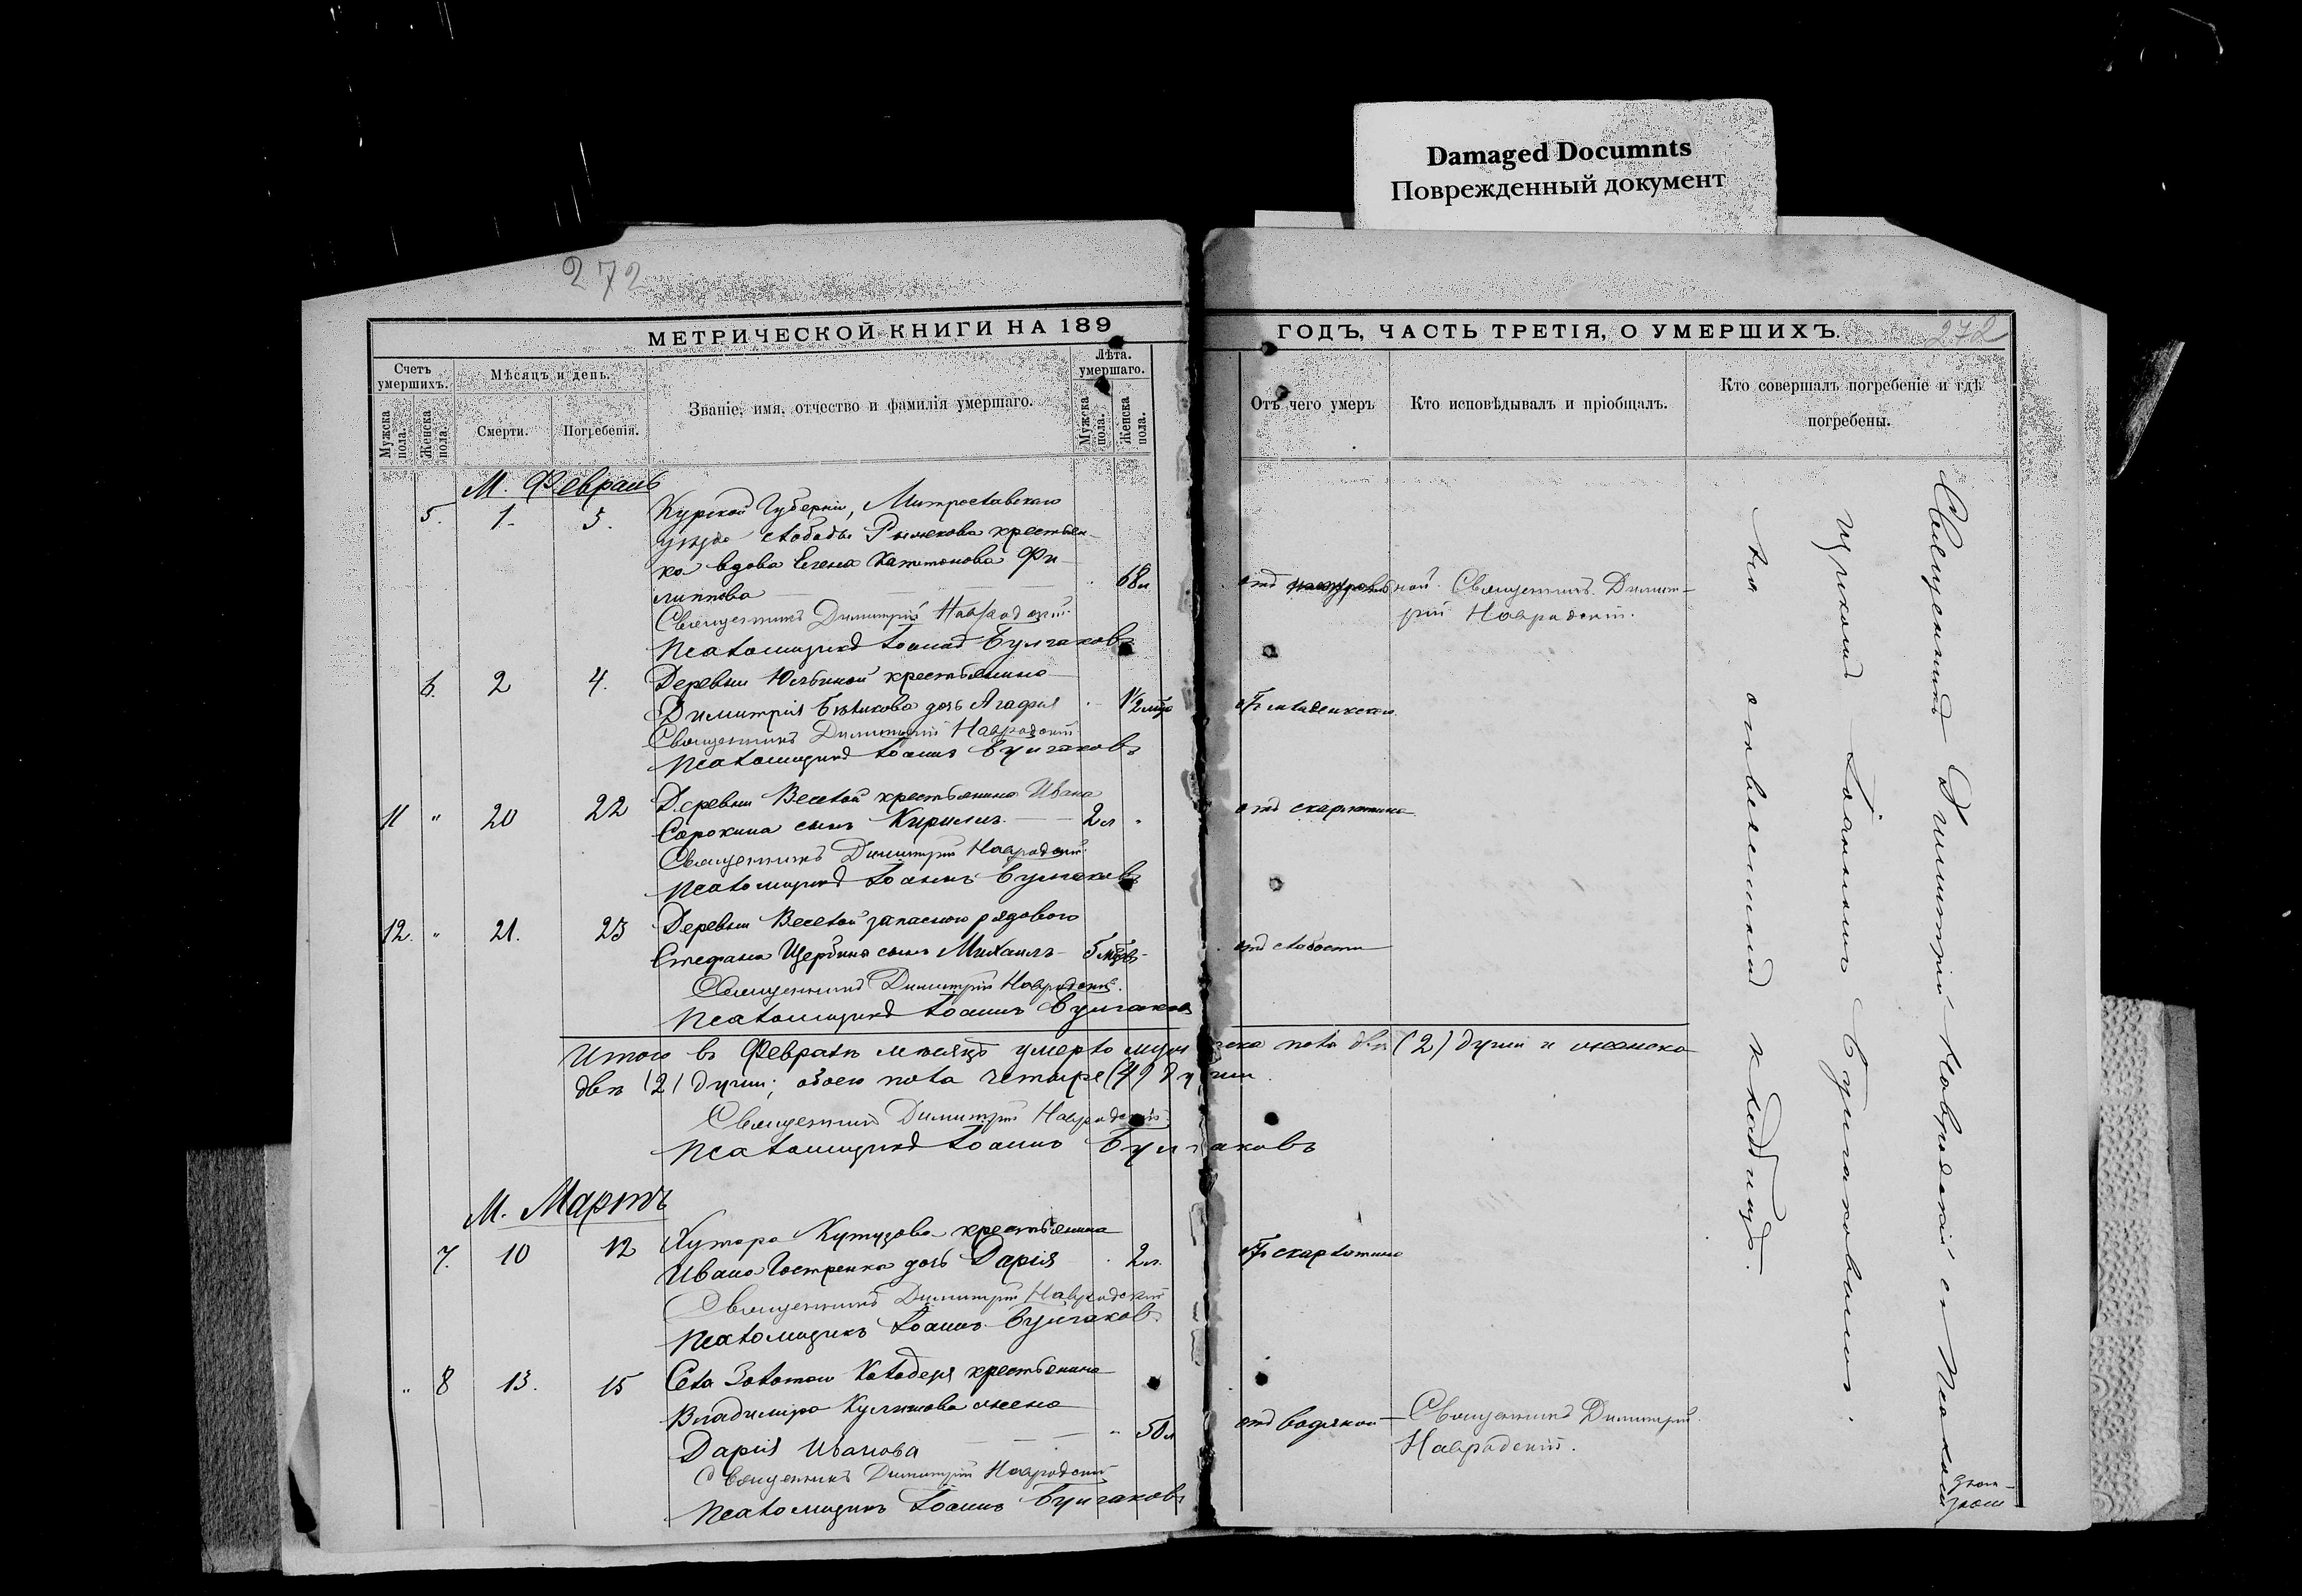 Damaged Documnts
Поврежденный документ
272
МЕТРИЧЕСКОЙ КНИГИ НА 189
ГОДЪ, ЧАСТЬ ТРЕТІЯ, О УМЕРШИХЪ.
272
Счетъ умершихъ.
Мѣсяцъ и день.
Званіе, имя, отчество и фамилія умершаго.
Лѣта. умершаго.
Мужска пола.
Женска пола.
Смерти.
Погребенія.
Мужска пола.
Женска пола.
Отъ чего умеръ
Кто исповѣдывалъ и пріобщалъ.
Кто совершалъ погребеніе и гдѣ
погребены.
М. Февраль
5. 1. 3. Курской Губерніи,
уѣзда слободы крестьян-
ка вдова Елена Фи-
липпова 68 л. отъ
Священникъ Димит-
рій Навродскій.
Священникъ Димитрій Навродскій
Псаломщикъ Іоаннъ Булгаковъ
6. 2 4. Деревни крестьянина
Димитрія дочь Агафія
Священникъ Димитрій Навродскій
Псаломщикъ Іоаннъ Булгаковъ
11 " 20 22 Деревни Веселой крестьянина Ивана
Сорокина сынъ Кириллъ 2 л " отъ скарлатины
Священникъ Димитрій Навродскій
Псаломщикъ Іоаннъ Булгаковъ
12. " 21. 23 Деревни Веселой запасного рядового
Стефана Щербина сынъ Михаилъ 5 отъ слабости
Священникъ Димитрій Навродскій.
Псаломщикъ Іоаннъ Булгаковъ
Итого въ Февралѣ мѣсяцѣ умерло мужеска пола двѣ (2) души и женска
двѣ (2) души; обоего пола четыре (4) души
Священникъ Димитрій Навродскій
Псаломщикъ Іоаннъ Булгаковъ
М. Мартъ
7. 10 12 Хутора Кутузова крестьянина
Ивана дочь Дарія 2 л. отъ скарлатины
Священникъ Димитрій Навродскій
Псаломщикъ Іоаннъ Булгаковъ
" 8 13. 15 Села Золотого Колодезя крестьянина
Владиміра жена
Дарія Иванова " 50 л отъ водяной
Священникъ Димитрій
Навродскій.
Священникъ Димитрій Навродскій
Псаломщикъ Іоаннъ Булгаковъ
Священникъ Димитрій Навродскій съ Псалом-
щикомъ Іоанномъ Булгаковымъ.
на кладбищѣ.